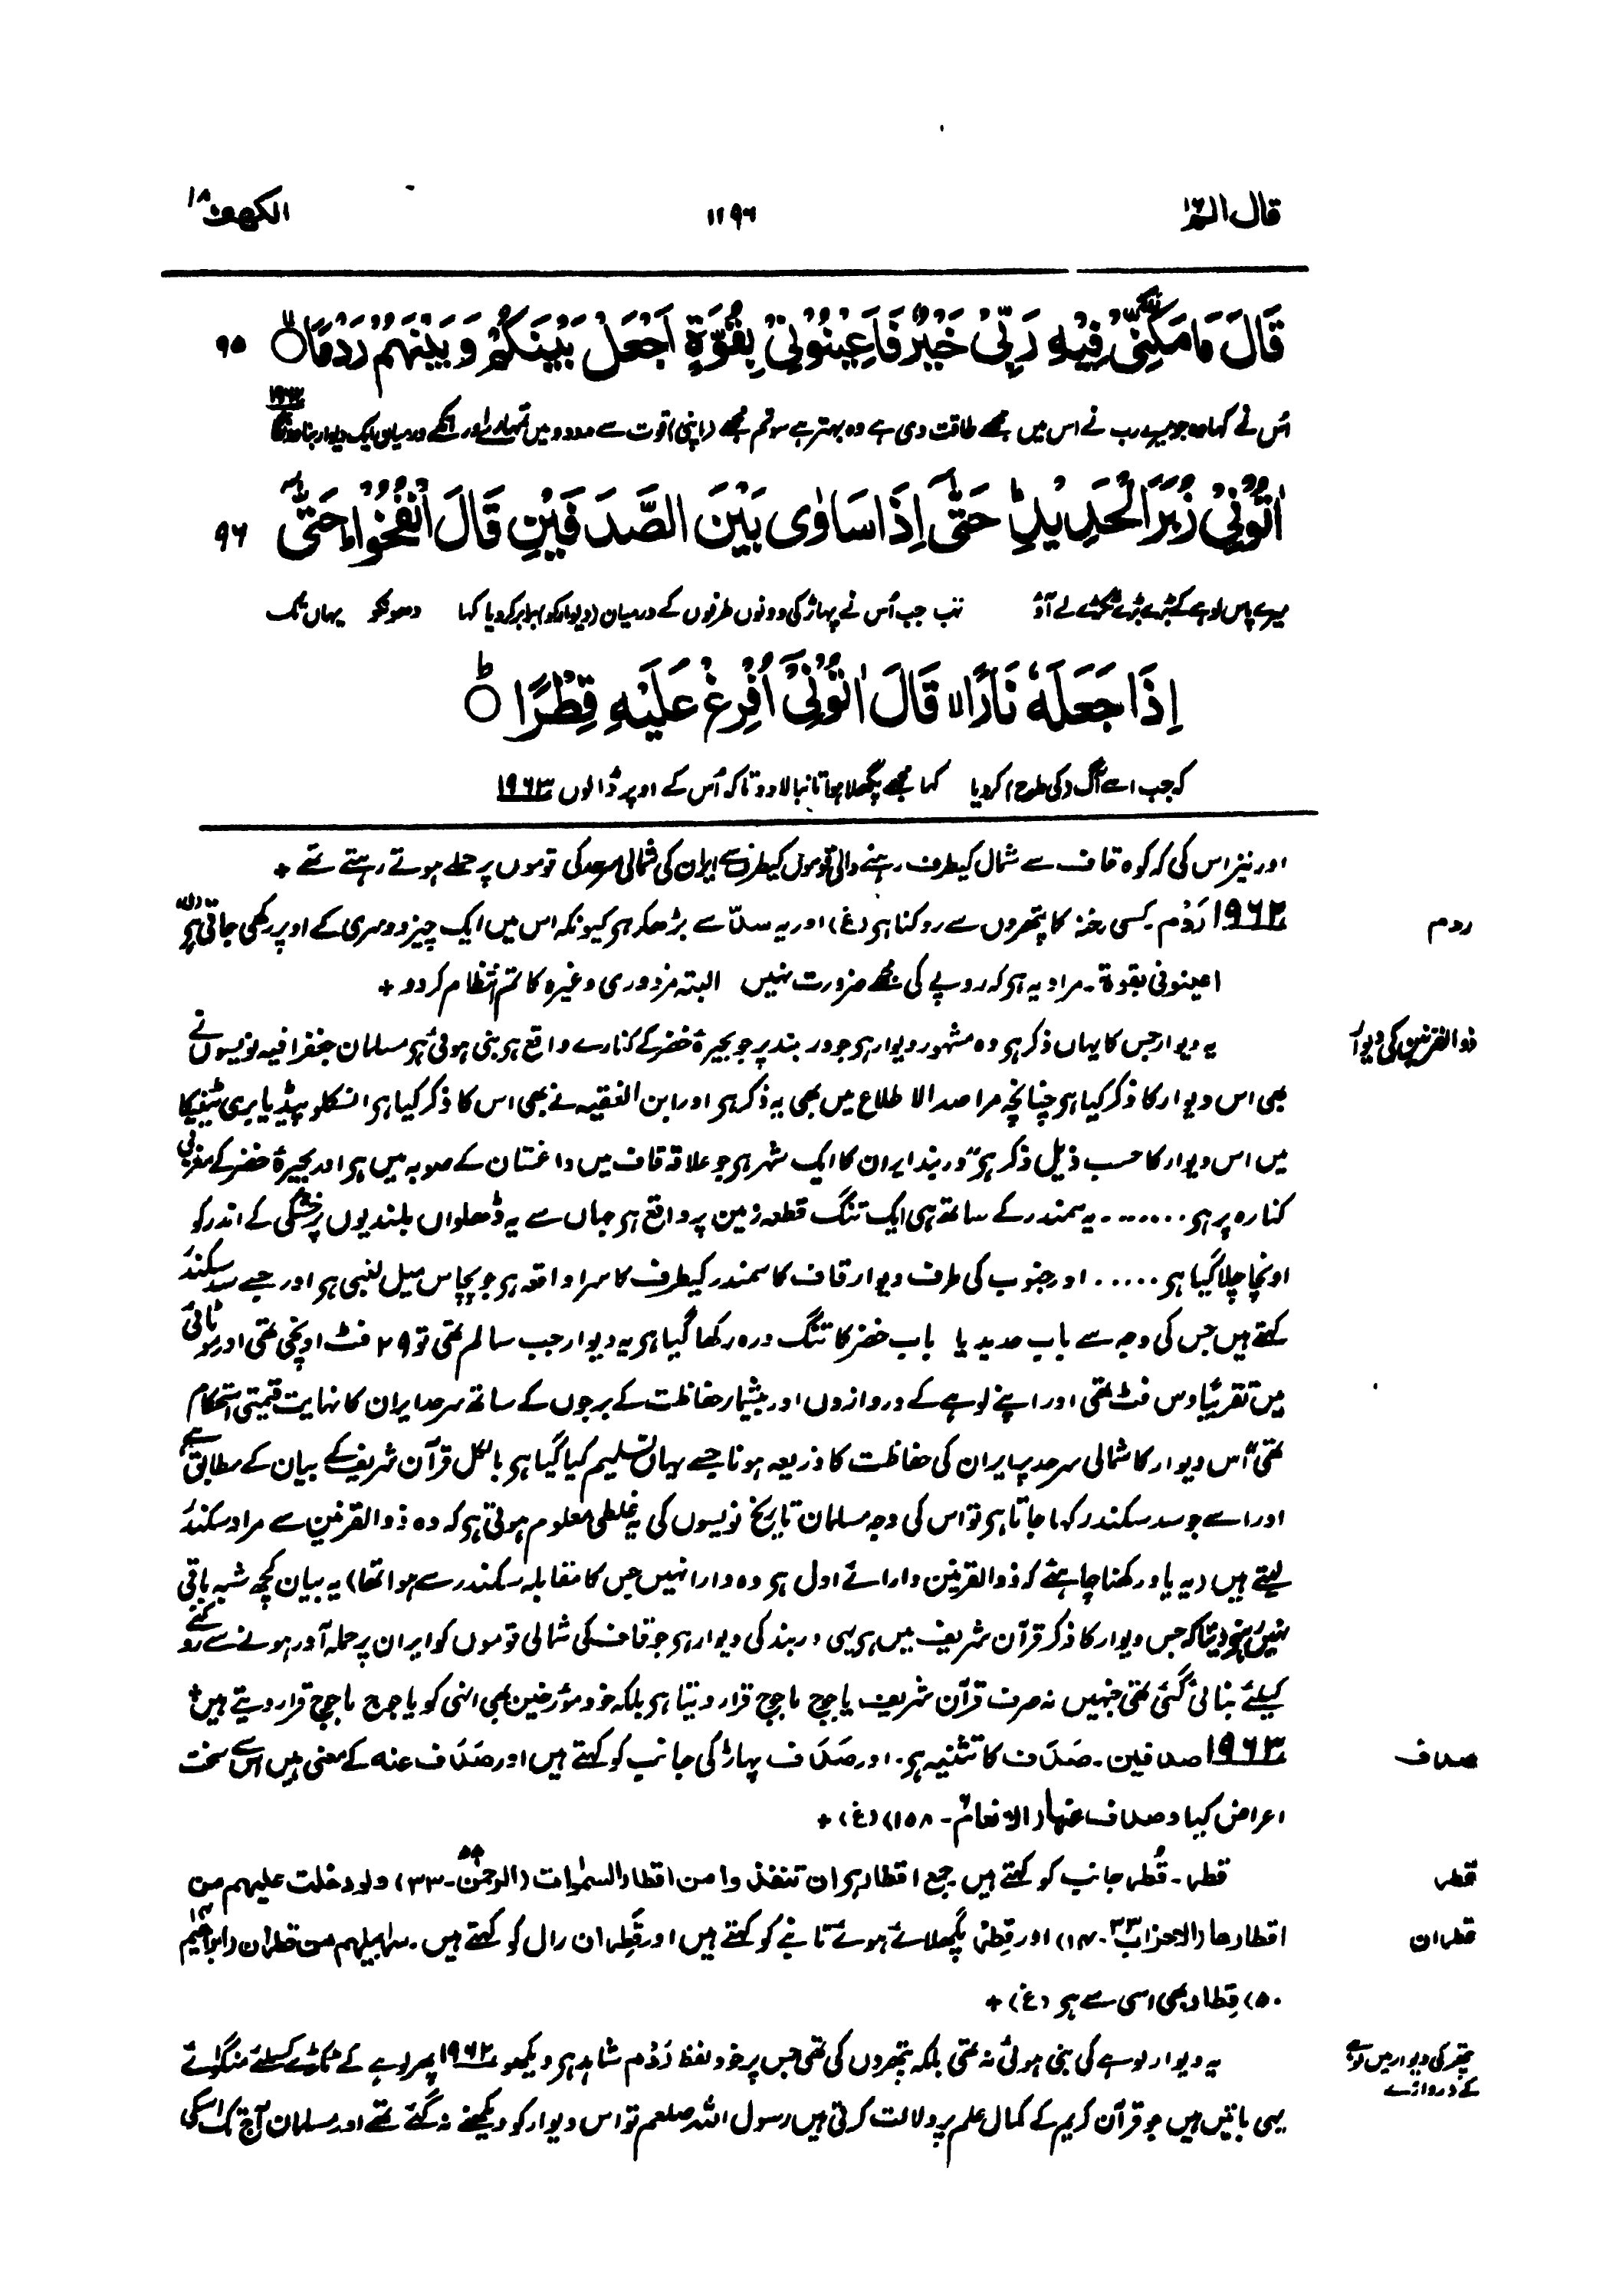 قال الم ١٦
١١٩٦
الکهف ١٨
قَالَ مَا مَكَّنِّىْ فِيْهِ رَبِّىْ خَيْرٌ فَاَعِيْنُوْنِىْ بِقُوَّةٍ اَجْعَلْ بَيْنَكُمْ وَبَيْنَهُمْ رَدْمًا ۙ ٩٥
اُس نے کہا وہ جو میرے رب نے اس میں مجھے طاقت دی ہے وہ بہتر ہے سو تم مجھے (اپنی) قوت سے مدد دو میں تمہارے اور انکے درمیان ایک دیوار بنا دونگا ١٩٦٢
اٰتُوْنِىْ زُبَرَ الْحَدِيْدِ ؕ حَتّٰٓى اِذَا سَاوٰى بَيْنَ الصَّدَفَيْنِ قَالَ انْفُخُوْا ؕ حَتّٰٓى ٩٦
میرے پاس لوہے کے بڑے بڑے ٹکڑے لے آؤ تب جب اُس نے پہاڑ کی دونوں طرفوں کے درمیان (دیوار کو) برابر کر دیا کہا دھونکو یہاں تک
اِذَا جَعَلَهٗ نَارًا ۙ قَالَ اٰتُوْنِىْٓ اُفْرِغْ عَلَيْهِ قِطْرًا ؕ
کہ جب اسے آگ (کی طرح) کر دیا کہا مجھے پگھلا ہوا تانبا لا دو تاکہ اُس کے اوپر ڈالوں ١٩٦٣
اور نیز اس کی کہ کوہ قاف سے شمال کیطرف رہنے والی قوموں کیطرف سے ایران کی شمالی سرحد کی قوموں پر حملے ہوتے رہتے تھے +
ردم
١٩٦٢ رَدْم۔ کسی رخنہ کا پتھروں سے روکنا ہے (غ) اور یہ سدّ سے بڑھکر ہے کیونکہ اس میں ایک چیز دوسری کے اوپر رکھی جاتی ہے
اعینونی بقوة۔ مراد یہ ہے کہ روپے کی مجھے ضرورت نہیں البتہ مزدوری وغیرہ کا تم انتظام کر دو +
ذوالقرنین کی دیوار
یہ دیوار جس کا یہاں ذکر ہے وہ مشہور دیوار ہے جو دربند پر جو بحیرۂ خضر کے کنارے واقع ہے بنی ہوئی ہے مسلمان جغرافیہ نویسوں نے
بھی اس دیوار کا ذکر کیا ہے چنانچہ مراصد الاطلاع میں بھی یہ ذکر ہے اور ابن الفقیہ نے بھی اس کا ذکر کیا ہے انسکلوپیڈیا بری ٹینیکا
میں اس دیوار کا حسب ذیل ذکر ہے "دربند ایران کا ایک شہر ہے جو علاقہ قاف میں داغستان کے صوبہ میں ہے اور بحیرۂ خضر کے مغربی
کنارہ پر ہے ....... یہ سمندر کے ساتھ ہی ایک تنگ قطعہ زمین پر واقع ہے جہاں سے یہ ڈھلواں بلندیوں پر خشکی کے اندر کو
اونچا چلا گیا ہے ..... اور جنوب کی طرف دیوار قاف کا سمندر کیطرف کا سرا واقعہ ہے جو پچاس میل لنبی ہے اور جسے سد سکندر
کہتے ہیں جس کی وجہ سے باب حدید یا باب خضر کا تنگ درہ رکھا گیا ہے یہ دیوار جب سالم تھی تو ٢٩ فٹ اونچی تھی اور موٹائی
میں تقریباً دس فٹ تھی اور اپنے لوہے کے دروازوں اور بیشمار حفاظت کے برجوں کے ساتھ سرحد ایران کا نہایت قیمتی استحکام
تھی" اس دیوار کا شمالی سرحد پر ایران کی حفاظت کا ذریعہ ہونا جسے یہاں تسلیم کیا گیا ہے بالکل قرآن شریف کے بیان کے مطابق ہے
اور اسے جو سد سکندر کہا جاتا ہے تو اس کی وجہ مسلمان تاریخ نویسوں کی یہ غلطی معلوم ہوتی ہے کہ وہ ذوالقرنین سے مراد سکندر
لیتے ہیں (یہ یاد رکھنا چاہئے کہ ذوالقرنین دارائے اول ہے وہ دارا نہیں جس کا مقابلہ سکندر سے ہوا تھا) یہ بیان کچھ شبہ باقی
نہیں رہنے دیتا کہ جس دیوار کا ذکر قرآن شریف میں ہے یہی دربند کی دیوار ہے جو قاف کی شمالی قوموں کو ایران پر حملہ آور ہونے سے روکنے
کیلئے بنائی گئی تھی جنہیں نہ صرف قرآن شریف یاجوج ماجوج قرار دیتا ہے بلکہ خود مؤرخین بھی انہی کو یاجوج ماجوج قرار دیتے ہیں +
صدف
١٩٦٣ صدفین۔ صَدَف کا تثنیہ ہے۔ اور صَدَف پہاڑ کی جانب کو کہتے ہیں اور صَدَف عنه کے معنی ہیں اس سے سخت
اعراض کیا وصدف عنها (الانعام ٦۔ ١٥٨) (غ) +
قطر
قطر۔ قُطر جانب کو کہتے ہیں جمع اقطار ہے ان تنفذوا من اقطار السمٰوات (الرحمٰن ٥٥۔ ٣٣) ولو دخلت علیهم من
قطران
اقطارها (الاحزاب ٣٣۔ ١٤) اور قِطْر پگھلائے ہوئے تانبے کو کہتے ہیں اور قَطِران رال کو کہتے ہیں۔ سرابیلهم من قطران (ابراهیم ١٤
٥٠) قِطار بھی اسی سے ہے (غ) +
پتھر کی دیوار میں لوہے
کے دروازے
یہ دیوار لوہے کی بنی ہوئی نہ تھی بلکہ پتھروں کی تھی جس پر خود لفظ رَدْم شاہد ہے دیکھو ١٩٦٢ پھر لوہے کے ٹکڑے کسلئے منگوائے
یہی باتیں ہیں جو قرآن کریم کے کمال علم پر دلالت کرتی ہیں رسول اللہ صلعم تو اس دیوار کو دیکھنے نہ گئے تھے اور مسلمان آج تک اس کی